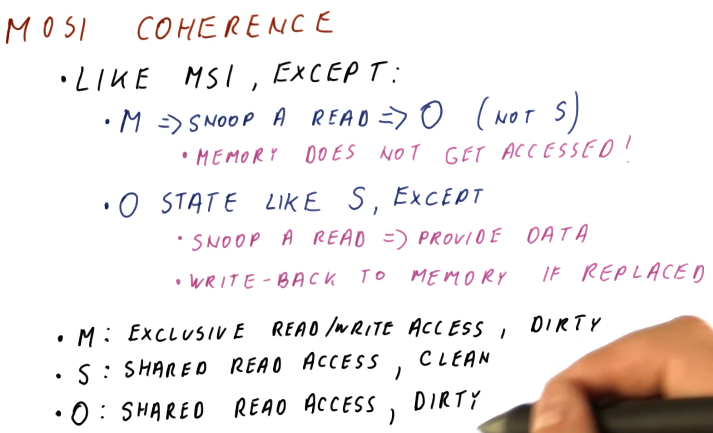 MOSI COHERENCE
• LIKE MSI, EXCEPT:
• M => SNOOP A READ => O (NOT S)
• MEMORY DOES NOT GET ACCESSED!
• O STATE LIKE S, EXCEPT
• SNOOP A READ => PROVIDE DATA
• WRITE-BACK TO MEMORY IF REPLACED
• M: EXCLUSIVE READ/WRITE ACCESS, DIRTY
• S: SHARED READ ACCESS, CLEAN
• O: SHARED READ ACCESS, DIRTY